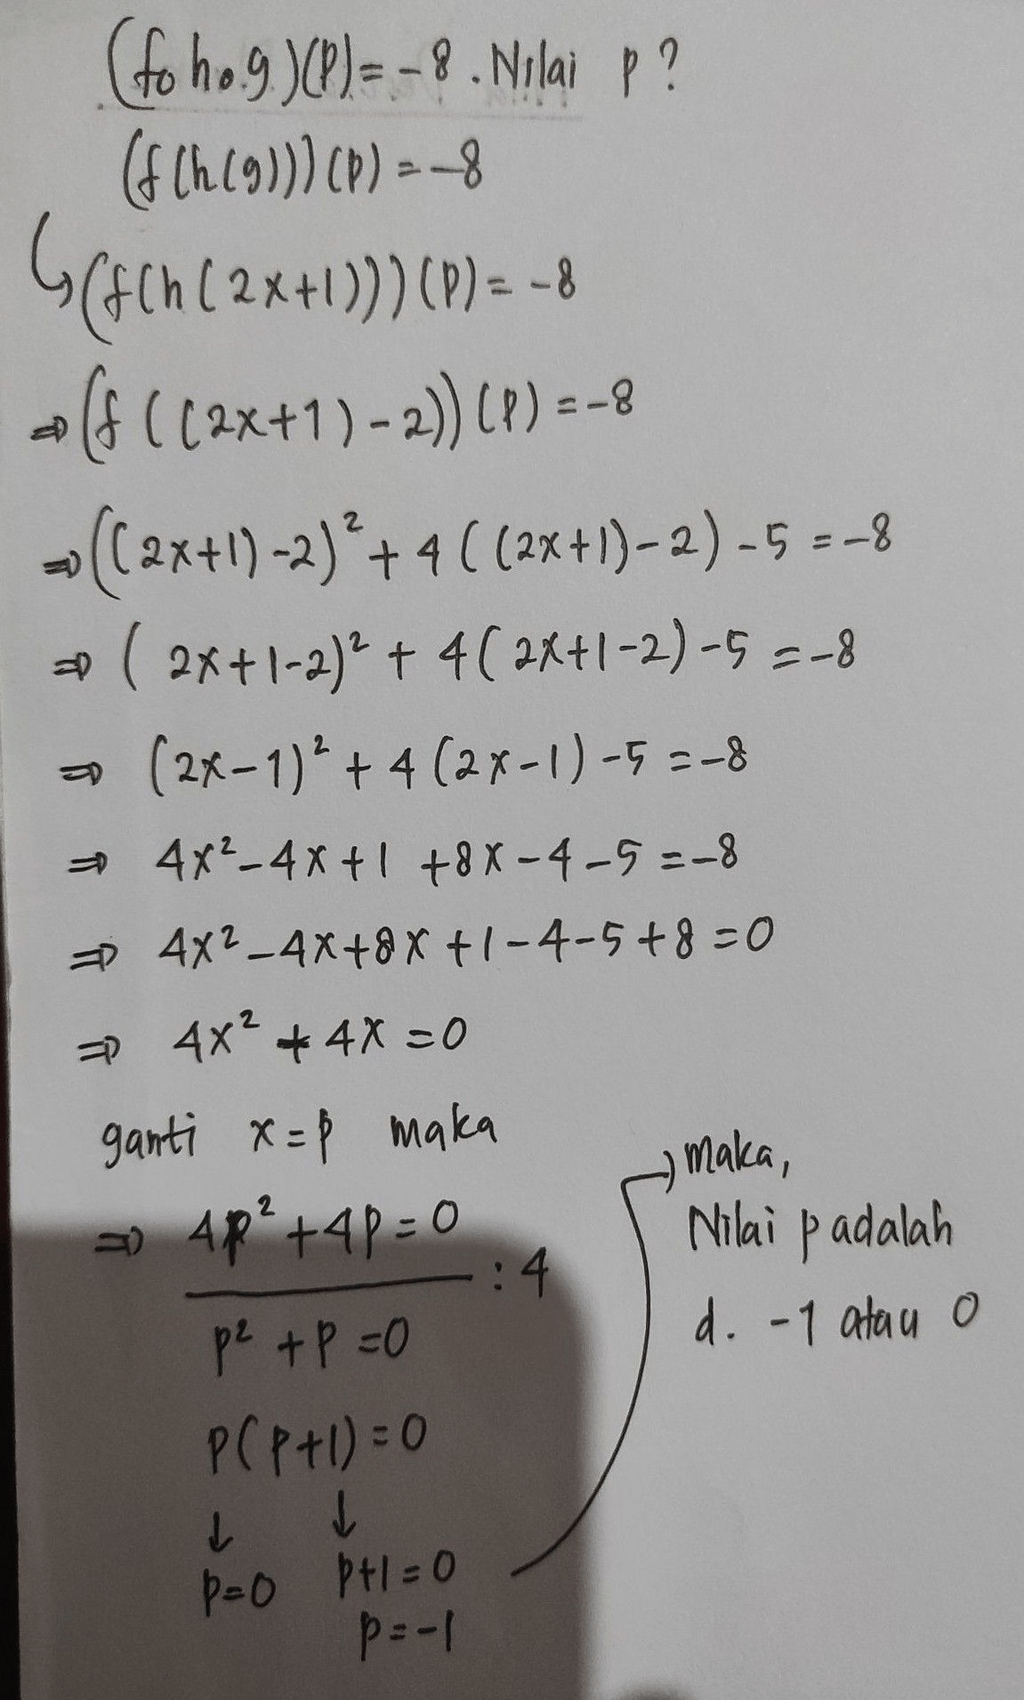 (f o h o g)(p) = -8 . Nilai p ?
(f(h(g)))(p) = -8
↳ (f(h(2x+1)))(p) = -8
⇒ (f((2x+1)-2))(p) = -8
⇒ ((2x+1)-2)² + 4((2x+1)-2) -5 = -8
⇒ (2x+1-2)² + 4(2x+1-2) -5 = -8
⇒ (2x-1)² + 4(2x-1) -5 = -8
⇒ 4x² -4x +1 +8x -4 -5 = -8
⇒ 4x² -4x +8x +1 -4 -5 +8 = 0
⇒ 4x² + 4x = 0
ganti x = p maka
⇒ 4p² + 4p = 0
: 4
p² + p = 0
p(p+1) = 0
↓ ↓
p=0 p+1 = 0
p = -1
→ maka,
Nilai p adalah
d. -1 atau 0